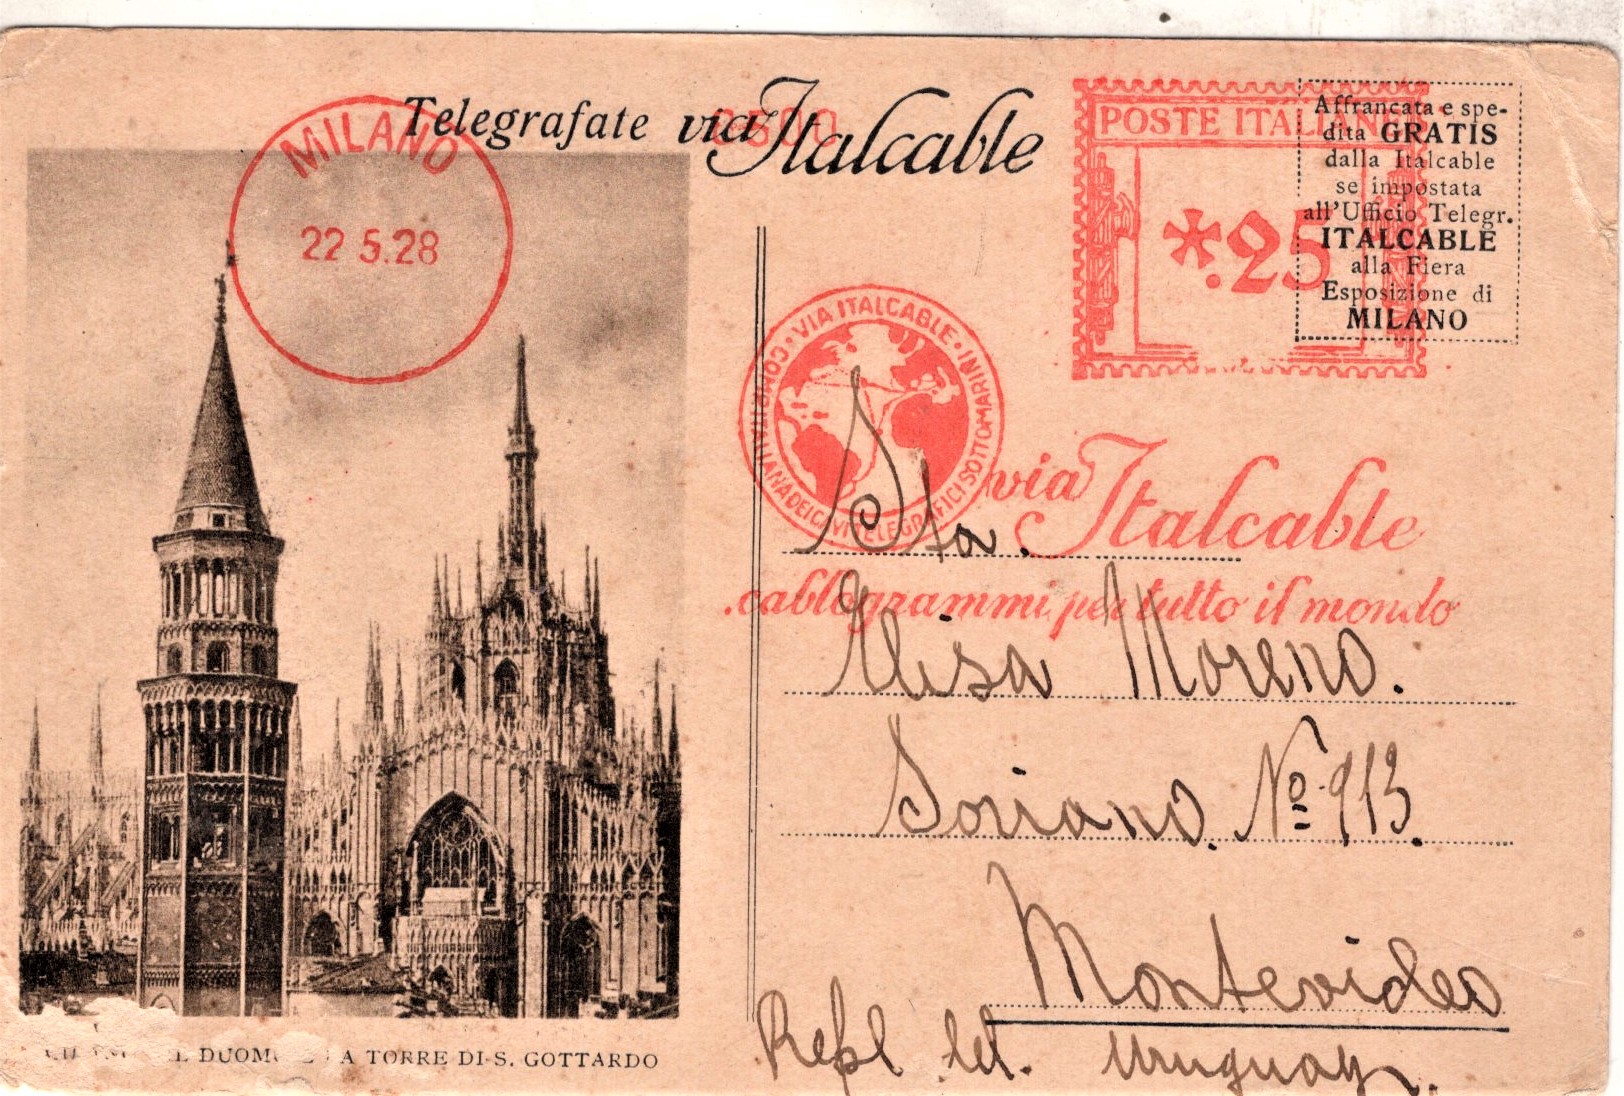 Telegrafate via Italcable
MILANO
22 5.28
POSTE ITALIANE
*.25
Affrancata e spe-
dita GRATIS
dalla Italcable
se impostata
all'Ufficio Telegr.
ITALCABLE
alla Fiera
Esposizione di
MILANO
VIA ITALCABLE · COMP. ITALIANA DEI CAVI TELEGRAFICI SOTTOMARINI
via Italcable
cablogrammi per tutto il mondo
Sta.
Elisa Moreno.
Soriano. Nº 913.
Montevideo
Repl del. Uruguay.
DUOMO E LA TORRE DI S. GOTTARDO